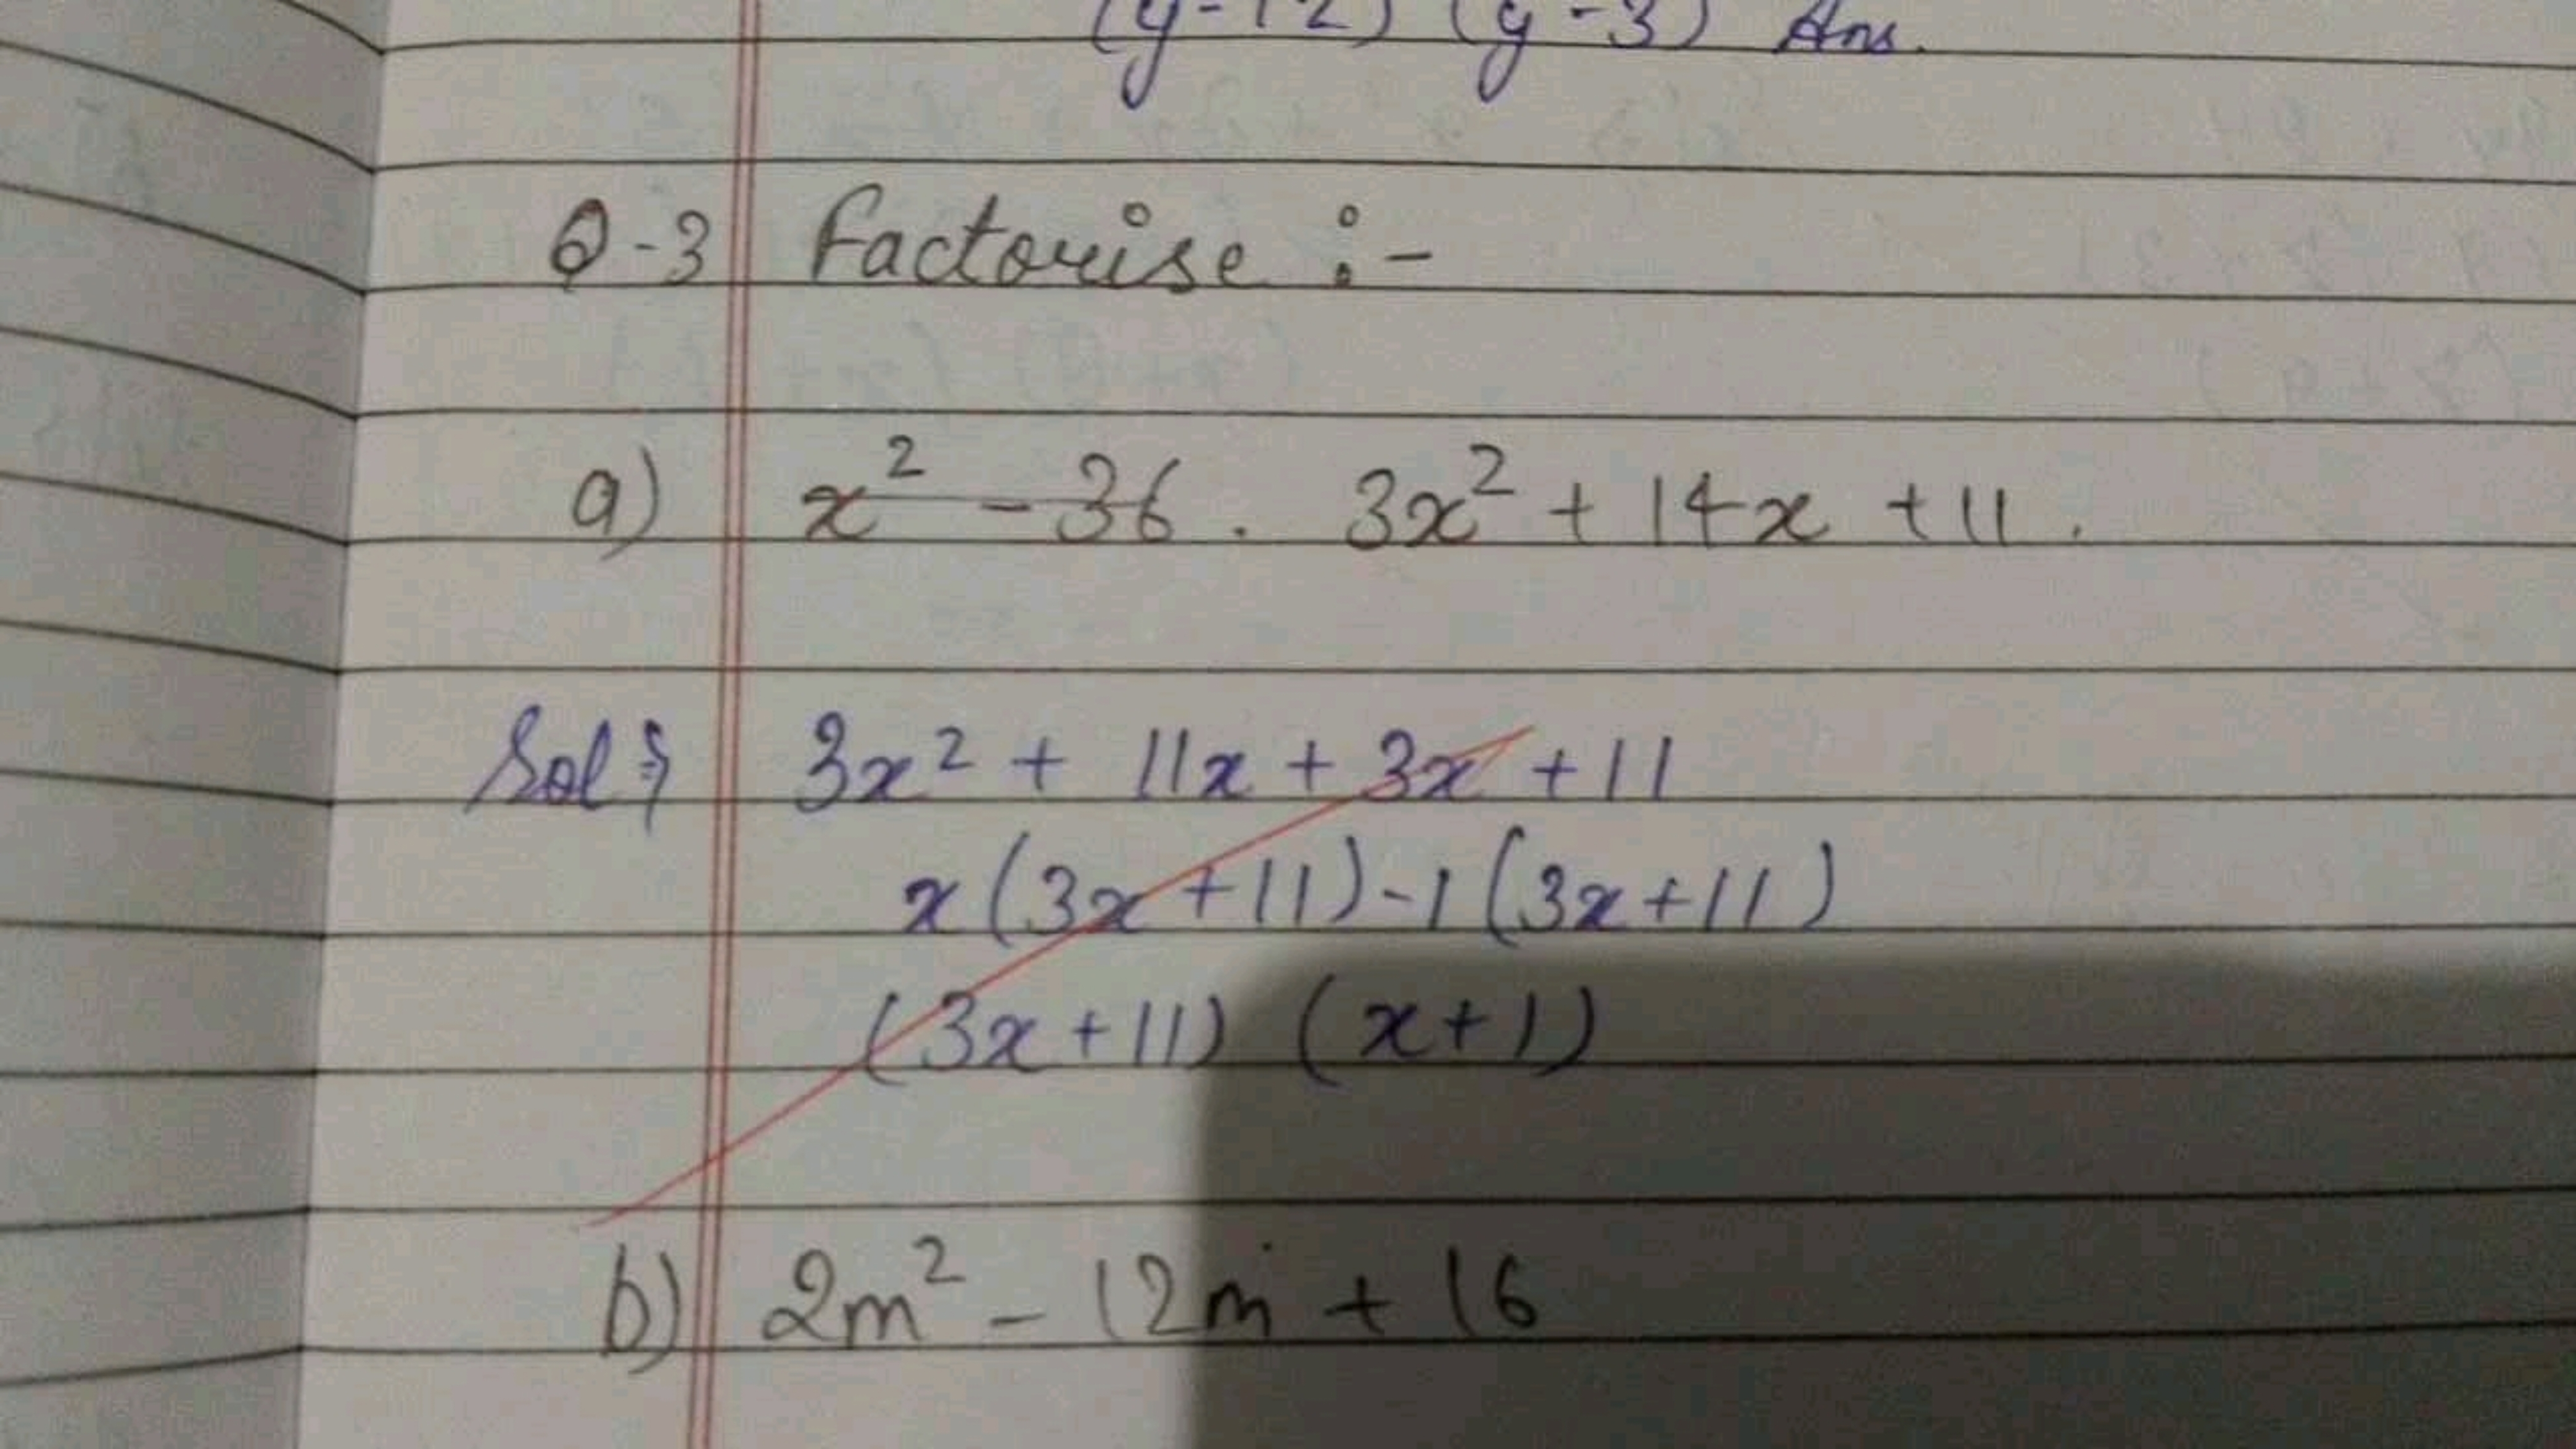 (y-12) (y-3) Ans.
Q-3 Factorise :-
a) x² - 36 . 3x² + 14x + 11 .
Sol⇒ 3x² + 11x + 3x + 11
x(3x+11)-1(3x+11)
(3x+11) (x+1)
b) 2m² - 12m + 16